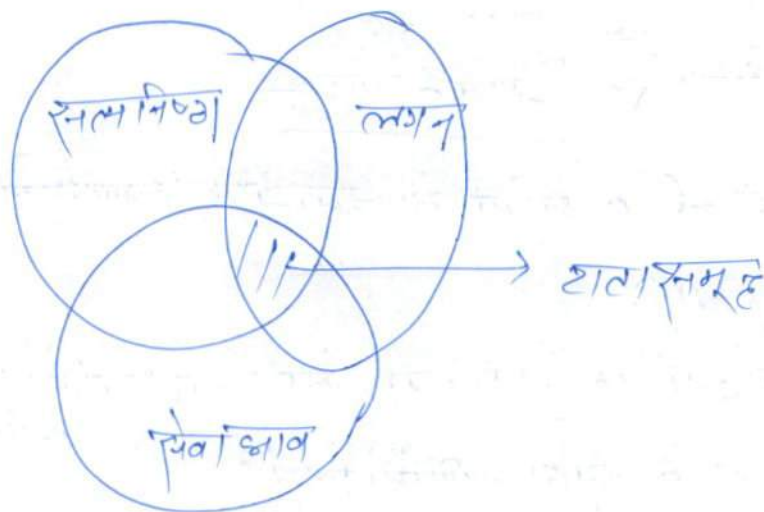 सत्यनिष्ठा
लगन
टाटा समूह
सेवा भाव